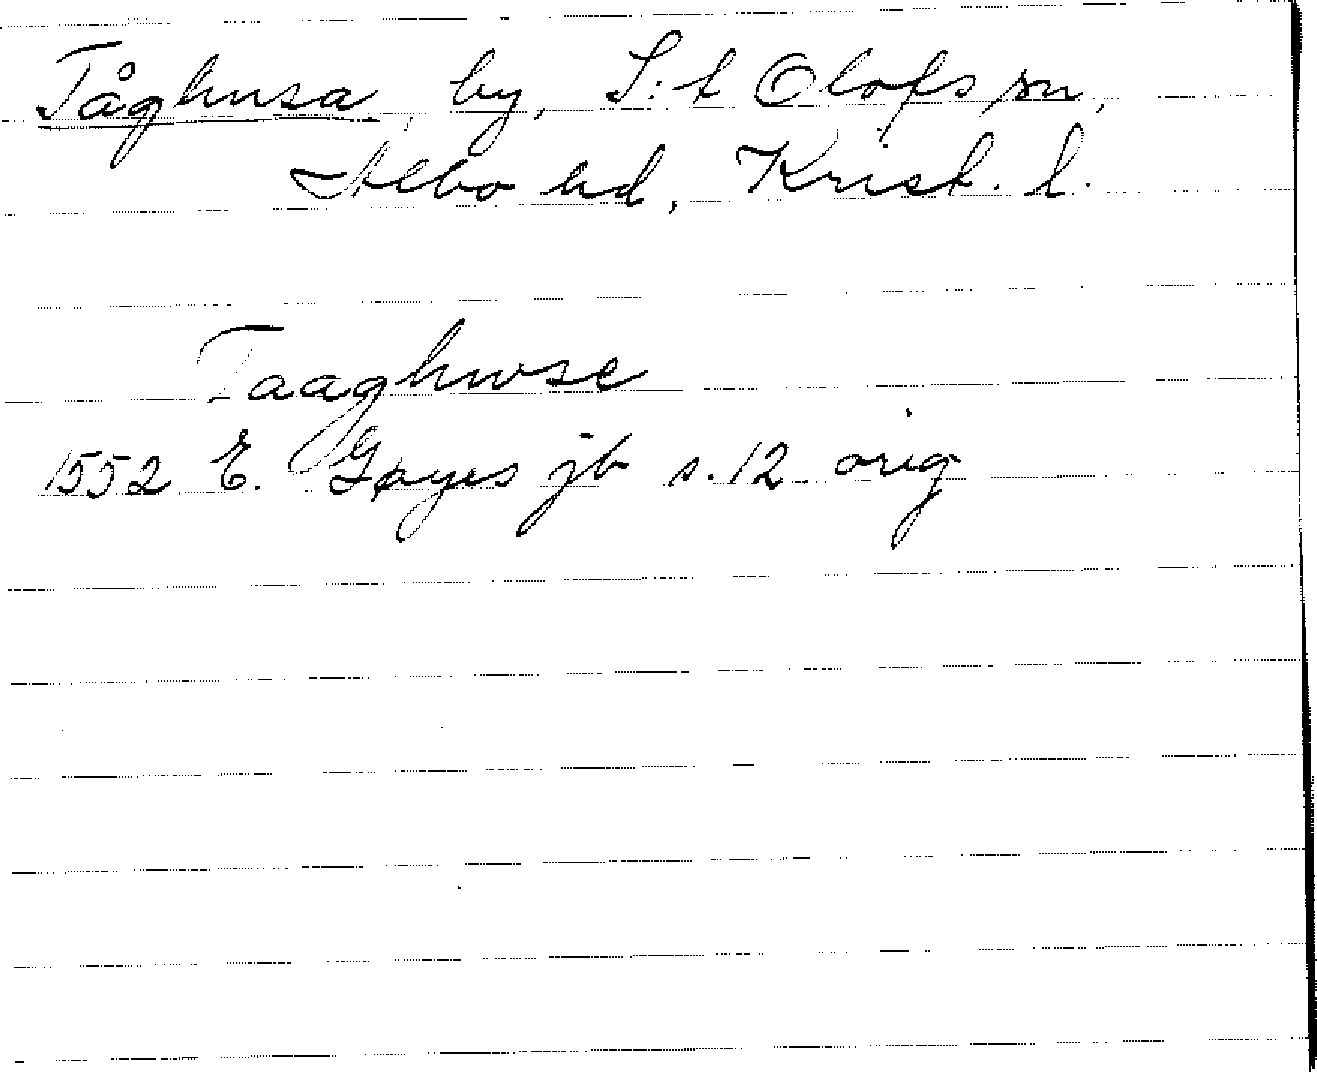 Tåghusa, by, S:t Olofs sn,
Albo hd, Krist. l.
Taaghwse
1552 E. Gøyes jb s. 12 orig